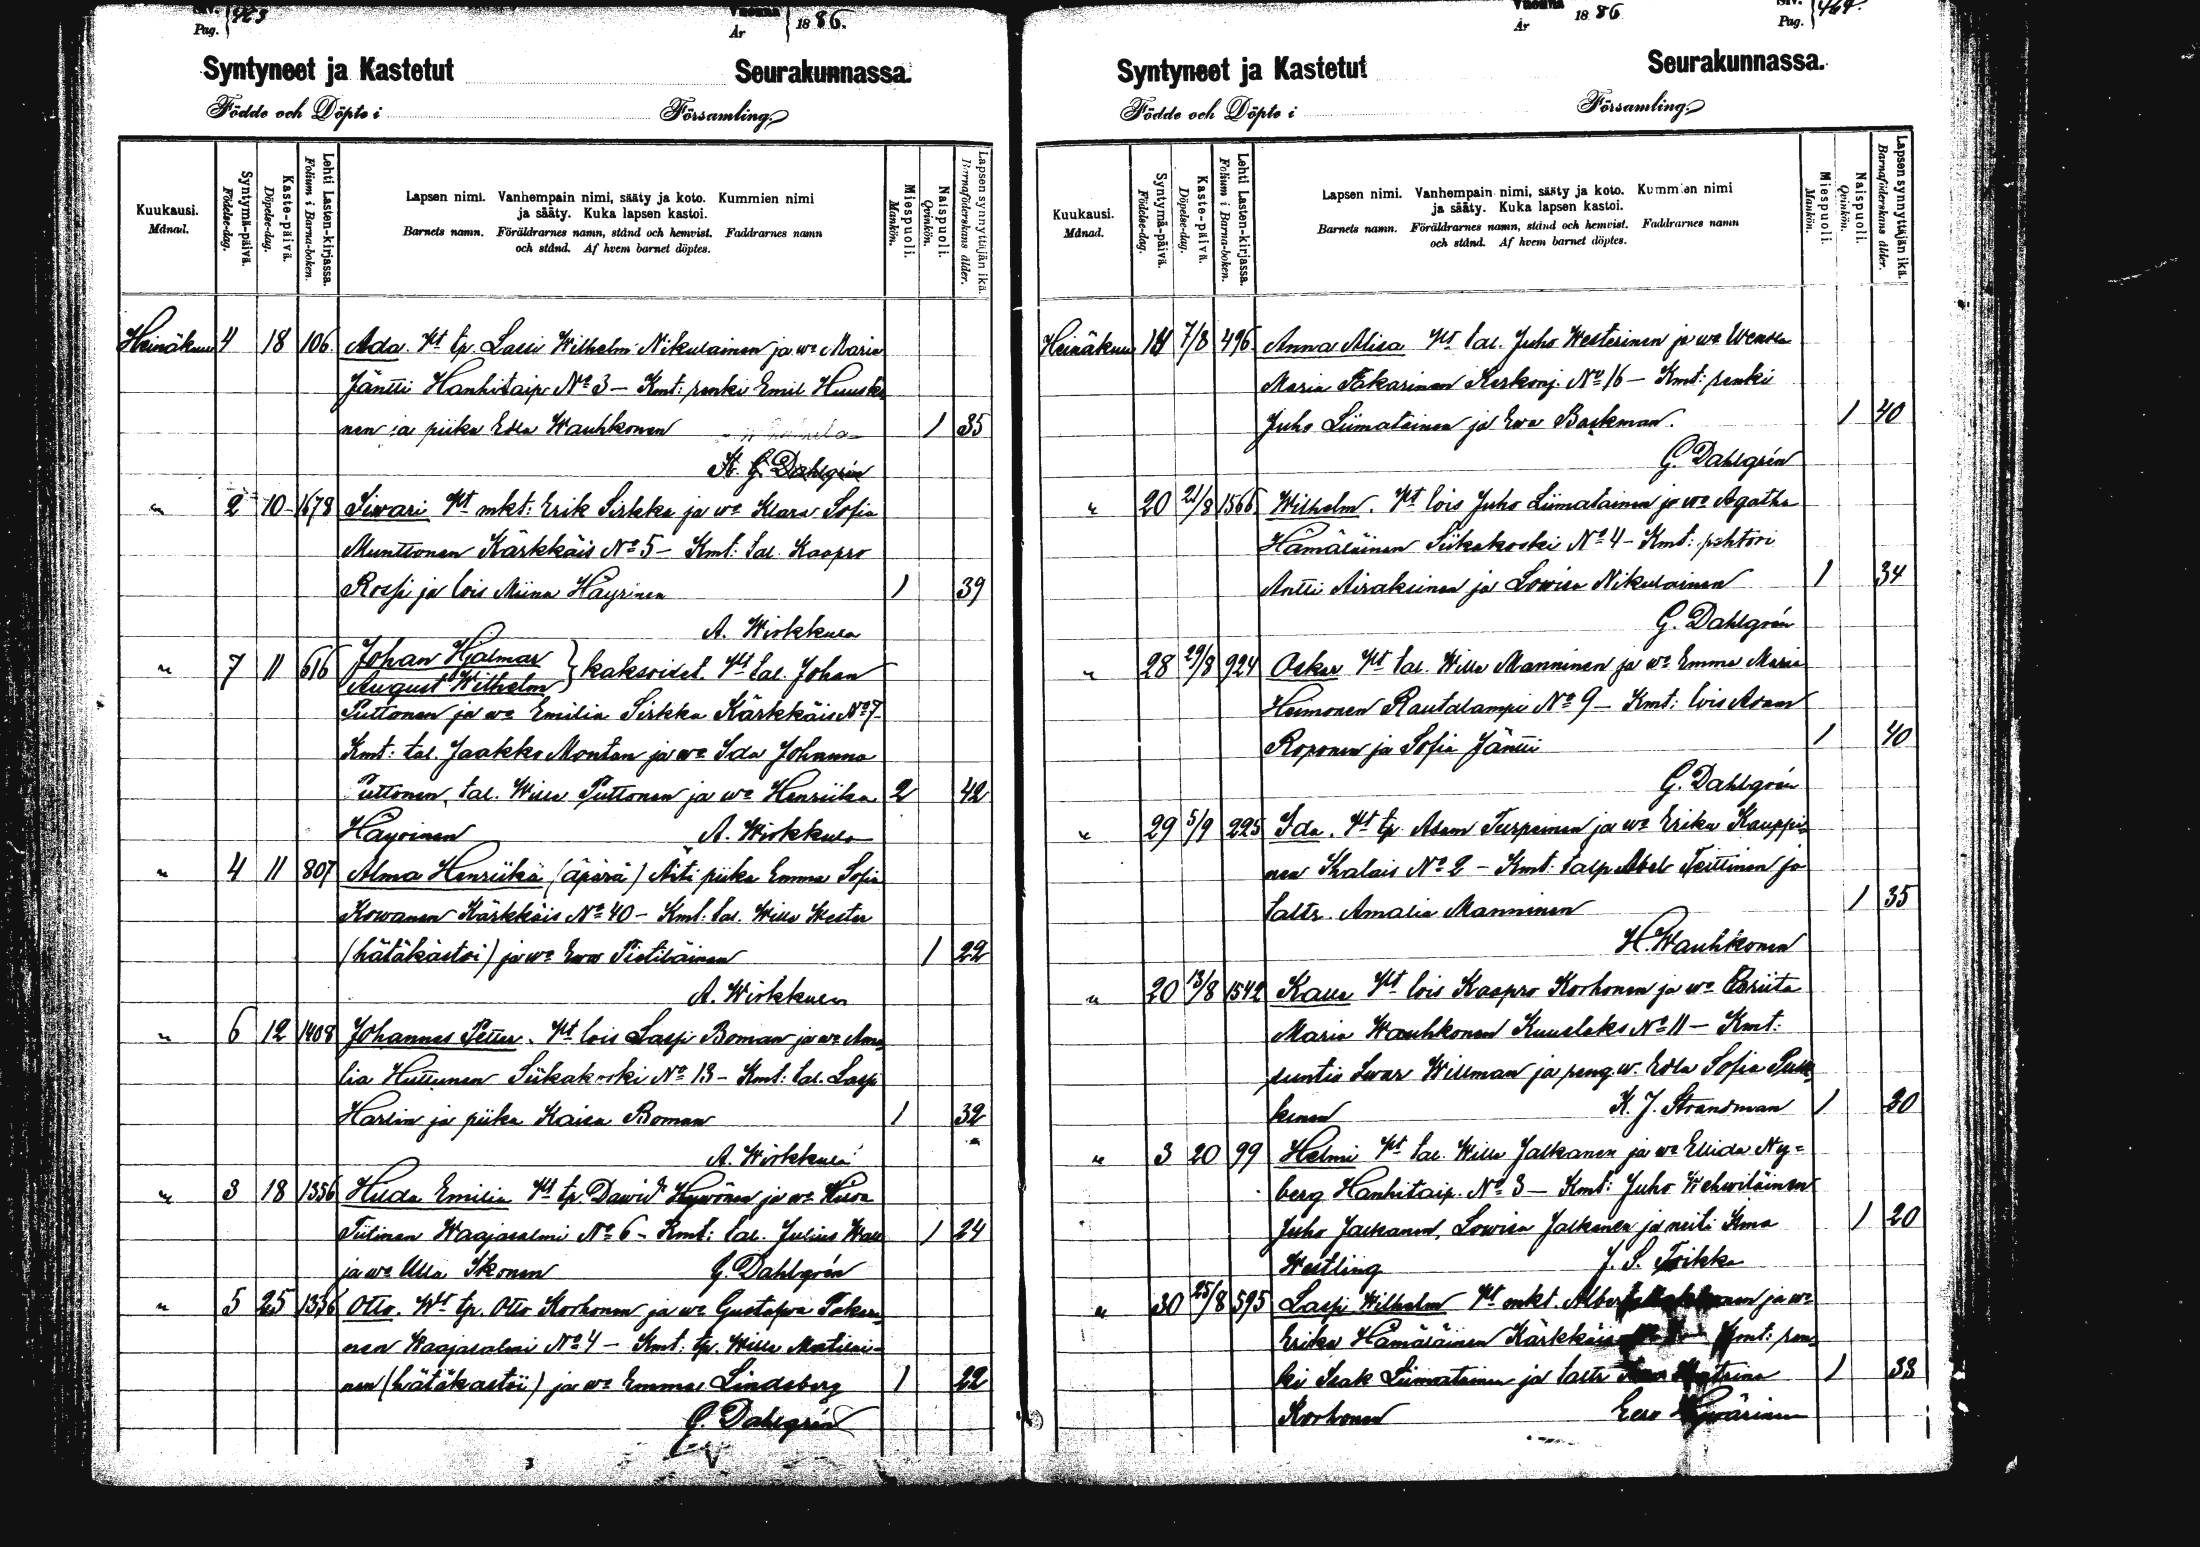 Siv. Pag. 463
Vuonna År 1886.
Syntyneet ja Kastetut Seurakunnassa.
Födde och Döpte i Församling.
Kuukausi. Månad.
Syntymä-päivä. Födelse-dag.
Kaste-päivä. Döpelse-dag.
Lehti Lasten-kirjassa. Folium i Barna-boken.
Lapsen nimi. Vanhempain nimi, sääty ja koto. Kummien nimi
ja sääty. Kuka lapsen kastoi.
Barnets namn. Föräldrarnes namn, stånd och hemvist. Faddrarnes namn
och stånd. Af hvem barnet döptes.
Miespuoli. Mankön.
Naispuoli. Qvinkön.
Lapsen synnyttäjän ikä. Barnaföderskans ålder.
Heinäkuu 4 18 106 Ada. Wt tp. Lassi Wilhelm Nikulainen ja wo Maria
Jäntti Hanhitaip No 3 – Kmt: renki Emil Huusko
nen ja piika Edla Wauhkonen 1 35
G. Dahlgrén
" 2 10 1678 Siwari Wt mkt: Erik Sirkka ja wo Klara Sofia
Munttonen Kärkkäis No 5 – Kmt: tal. Kaapro
Rossi ja lois Miina Häyrinen 1 39
A. Wirkkula
" 7 11 616 Johan Hjalmar
August Wilhelm } kaksoiset. Wt tal. Johan
Puttonen ja wo Emilia Sirkka Kärkkäis No 7
Kmt: tal. Jaakko Montan ja wo Ida Johanna
Puttonen, tal. Wille Puttonen ja wo Henriika 2 42
Häyrinen A. Wirkkula
" 4 11 807 Alma Henriika (äpärä) Äiti piika Emma Sofia
Kowanen Kärkkäis No 40 – Kmt: tal. Wille Wester
(hätäkastoi) ja wo Ewa Pietiläinen 1 22
A. Wirkkula
" 6 12 1408 Johannes Petter. Wt lois Lassi Boman ja wo Ama
lia Huttunen Siikakoski No 13 – Kmt: tal. Lassi
Harlin ja piika Kaisa Boman 1 32
A. Wirkkula
" 3 18 1356 Hilda Emilia Wt tp. Dawid Hywönen ja wo
Tiitinen Waajasalmi No 6 – Kmt: tal. Julius Wall 1 24
ja wo Ulla Ikonen G. Dahlgrén
" 5 25 1336 Otto. Wt tp. Otto Korhonen ja wo Gustafwa Takari
nen Waajasalmi No 4 – Kmt: tp. Wille Matilai-
nen (hätäkastoi) ja wo Emma Lindeberg 1 22
G. Dahlgrén
Siv. Pag. 464.
Vuonna År 1886
Syntyneet ja Kastetut Seurakunnassa.
Födde och Döpte i Församling.
Kuukausi. Månad.
Syntymä-päivä. Födelse-dag.
Kaste-päivä. Döpelse-dag.
Lehti Lasten-kirjassa. Folium i Barna-boken.
Lapsen nimi. Vanhempain nimi, sääty ja koto. Kummien nimi
ja sääty. Kuka lapsen kastoi.
Barnets namn. Föräldrarnes namn, stånd och hemvist. Faddrarnes namn
och stånd. Af hvem barnet döptes.
Miespuoli. Mankön.
Naispuoli. Qvinkön.
Lapsen synnyttäjän ikä. Barnaföderskans ålder.
Heinäkuu 7/8 496 Anna Alisa Wt tal. Juho Westerinen ja wo
Maria Takarinen Kerkonj. No 16 – Kmt: renki
Juho Liimatainen ja Ewa Backman. 1 40
G. Dahlgrén
" 20 21/8 1566 Wilhelm. Wt lois Juho Liimatainen ja wo Agatha
Hämäläinen Siikakoski No 4 – Kmt: pehtori
Antti Airaksinen ja Lowisa Nikulainen 1 34
G. Dahlgrén
" 28 29/8 924 Oskar Wt tal. Wille Manninen ja wo Emma Maria
Heimonen Rautalampi No 9 – Kmt: lois Adam
Roponen ja Sofia Jäntti 1 40
G. Dahlgrén
" 29 5/9 225 Ida. Wt tp. Adam Turpeinen ja wo Erika Kauppi
nen No 2 – Kmt: talp. Abel Terttinen ja
taltr. Amalia Manninen 1 35
H. Wauhkonen
" 20 13/8 1542 Kalle Wt lois Kaapro Korhonen ja wo Briita
Maria Wauhkonen Kuuslaks No 11 – Kmt:
suntio Iwar Willman ja reng.w. Edla Sofia Pulk
kinen K. J. Strandman 1 20
" 3 20 99 Helmi Wt tal. Wille Jalkanen ja wo Ellida Ny=
berg Hanhitaip. No 3 – Kmt: Juho Wehwiläinen
Juho Jalkanen, Lowisa Jalkanen ja neiti Alma
Westling J. S. Toikka 1 20
" 30 25/8 595 Lassi Wilhelm Wt mkt. Albert ja wo
Erika Hämäläinen Kärkkäis Kmt: ren
ki Isak Liimatainen ja taltr Katrina 1 33
Korhonen Eero Hywärinen